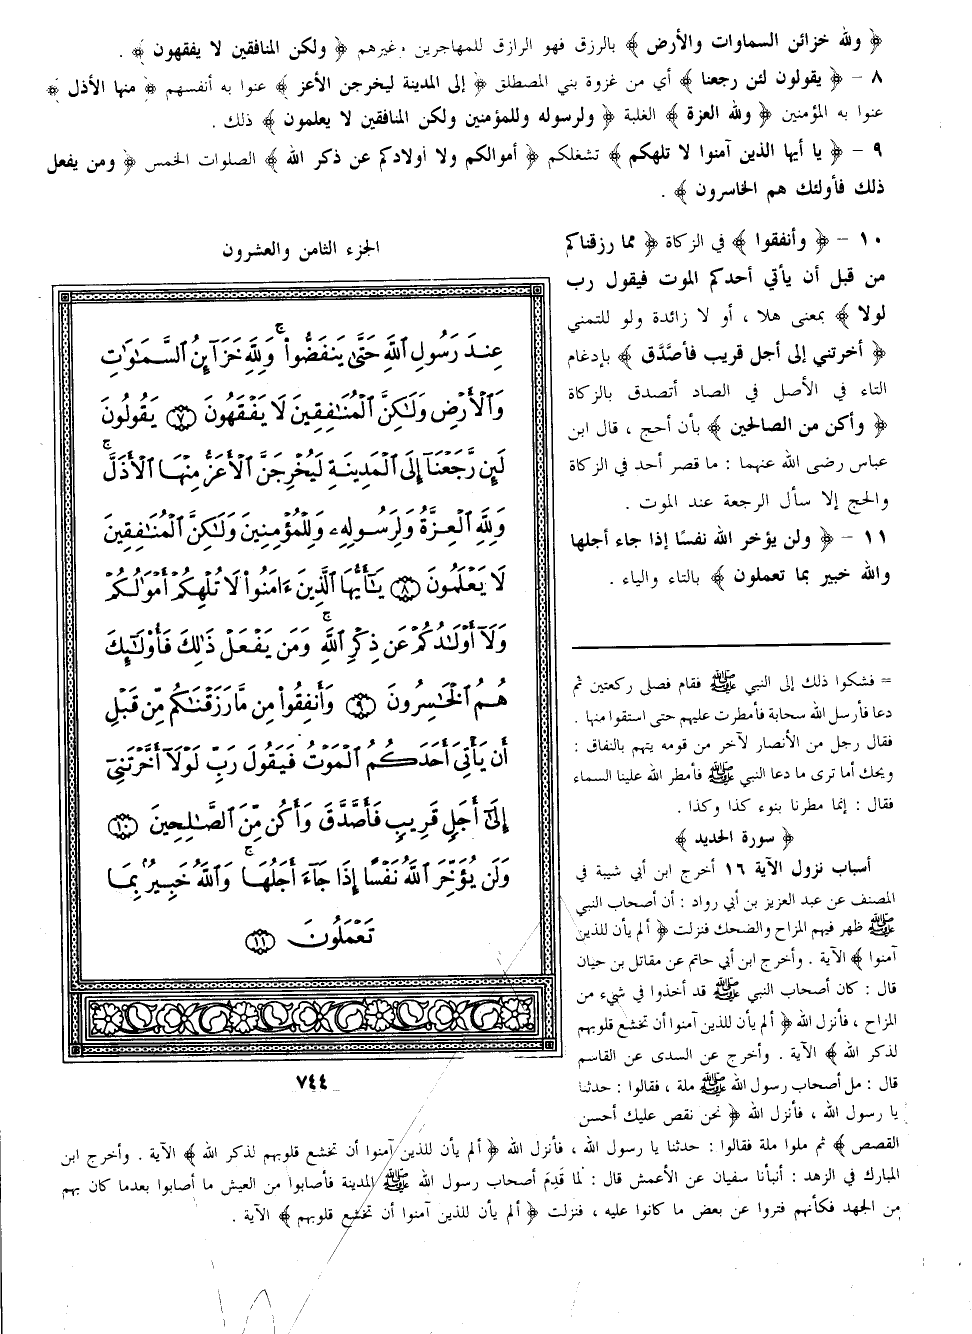 ﴿ ولله خزائن السماوات والأرض ﴾ بالرزق فهو الرازق للمهاجرين وغيرهم ﴿ ولكن المنافقين لا يفقهون ﴾ .
٨ – ﴿ يقولون لئن رجعنا ﴾ أي من غزوة بني المصطلق ﴿ إلى المدينة ليخرجن الأعز ﴾ عنوا به أنفسهم ﴿ منها الأذل ﴾
عنوا به المؤمنين ﴿ ولله العزة ﴾ الغلبة ﴿ ولرسوله وللمؤمنين ولكن المنافقين لا يعلمون ﴾ ذلك .
٩ – ﴿ يا أيها الذين آمنوا لا تلهكم ﴾ تشغلكم ﴿ أموالكم ولا أولادكم عن ذكر الله ﴾ الصلوات الخمس ﴿ ومن يفعل
ذلك فأولئك هم الخاسرون ﴾ .
١٠ – ﴿ وأنفقوا ﴾ في الزكاة ﴿ مما رزقناكم
من قبل أن يأتي أحدكم الموت فيقول رب
لولا ﴾ بمعنى هلا ، أو لا زائدة ولو للتمني
﴿ أخرتني إلى أجل قريب فأصَّدَّق ﴾ بإدغام
التاء في الأصل في الصاد أتصدق بالزكاة
﴿ وأكن من الصالحين ﴾ بأن أحج ، قال ابن
عباس رضى الله عنهما : ما قصر أحد في الزكاة
والحج إلا سأل الرجعة عند الموت .
١١ – ﴿ ولن يؤخر الله نفسًا إذا جاء أجلها
والله خبير بما تعملون ﴾ بالتاء والياء .
الجزء الثامن والعشرون
عِندَ رَسُولِ ٱللَّهِ حَتَّىٰ يَنفَضُّوا۟ ۗ وَلِلَّهِ خَزَآئِنُ ٱلسَّمَـٰوَٰتِ
وَٱلْأَرْضِ وَلَـٰكِنَّ ٱلْمُنَـٰفِقِينَ لَا يَفْقَهُونَ ٧ يَقُولُونَ
لَئِن رَّجَعْنَآ إِلَى ٱلْمَدِينَةِ لَيُخْرِجَنَّ ٱلْأَعَزُّ مِنْهَا ٱلْأَذَلَّ ۚ
وَلِلَّهِ ٱلْعِزَّةُ وَلِرَسُولِهِۦ وَلِلْمُؤْمِنِينَ وَلَـٰكِنَّ ٱلْمُنَـٰفِقِينَ
لَا يَعْلَمُونَ ٨ يَـٰٓأَيُّهَا ٱلَّذِينَ ءَامَنُوا۟ لَا تُلْهِكُمْ أَمْوَٰلُكُمْ
وَلَآ أَوْلَـٰدُكُمْ عَن ذِكْرِ ٱللَّهِ ۚ وَمَن يَفْعَلْ ذَٰلِكَ فَأُو۟لَـٰٓئِكَ
هُمُ ٱلْخَـٰسِرُونَ ٩ وَأَنفِقُوا۟ مِن مَّا رَزَقْنَـٰكُم مِّن قَبْلِ
أَن يَأْتِىَ أَحَدَكُمُ ٱلْمَوْتُ فَيَقُولَ رَبِّ لَوْلَآ أَخَّرْتَنِىٓ
إِلَىٰٓ أَجَلٍ قَرِيبٍ فَأَصَّدَّقَ وَأَكُن مِّنَ ٱلصَّـٰلِحِينَ ١٠
وَلَن يُؤَخِّرَ ٱللَّهُ نَفْسًا إِذَا جَآءَ أَجَلُهَا ۚ وَٱللَّهُ خَبِيرٌۢ بِمَا
تَعْمَلُونَ ١١
٧٤٤
= فشكوا ذلك إلى النبي ﷺ فقام فصلى ركعتين ثم
دعا فأرسل الله سحابة فأمطرت عليهم حتى استقوا منها .
فقال رجل من الأنصار لآخر من قومه يتهم بالنفاق :
ويحك أما ترى ما دعا النبي ﷺ فأمطر الله علينا السماء
فقال : إنما مطرنا بنوء كذا وكذا .
﴿ سورة الحديد ﴾
أسباب نزول الآية ١٦ أخرج ابن أبي شيبة في
المصنف عن عبد العزيز بن أبي رواد : أن أصحاب النبي
ﷺ ظهر فيهم المزاح والضحك فنزلت ﴿ ألم يأن للذين
آمنوا ﴾ الآية . وأخرج ابن أبي حاتم عن مقاتل بن حيان
قال : كان أصحاب النبي ﷺ قد أخذوا في شيء من
المزاح ، فأنزل الله ﴿ ألم يأن للذين آمنوا أن تخشع قلوبهم
لذكر الله ﴾ الآية . وأخرج عن السدى عن القاسم
قال : مل أصحاب رسول الله ﷺ ملة ، فقالوا : حدثنا
يا رسول الله ، فأنزل الله ﴿ نحن نقص عليك أحسن
القصص ﴾ ثم ملوا ملة فقالوا : حدثنا يا رسول الله ، فأنزل الله ﴿ ألم يأن للذين آمنوا أن تخشع قلوبهم لذكر الله ﴾ الآية . وأخرج ابن
المبارك في الزهد : أنبأنا سفيان عن الأعمش قال : لما قَدِمَ أصحاب رسول الله ﷺ المدينة فأصابوا من العيش ما أصابوا بعدما كان بهم
من الجهد فكأنهم فتروا عن بعض ما كانوا عليه ، فنزلت ﴿ ألم يأن للذين آمنوا أن تخشع قلوبهم ﴾ الآية .